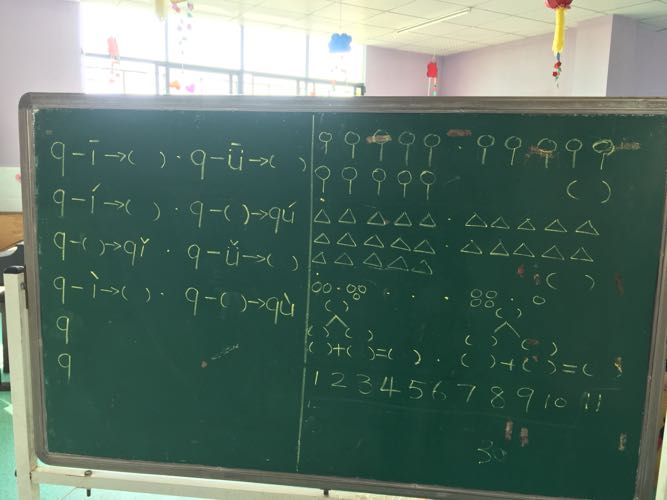 q-ī→( ) · q-ǖ→( )
q-í→( ) · q-( )→qú
q-( )→qǐ · q-ǚ→( )
q-ì→( ) · q-( )→qù
q
q
( )
( )
( ) ( )
( ) ( ) ( ) ( )
( )+( )=( ) · ( )+( )=( )
1 2 3 4 5 6 7 8 9 10 11
30